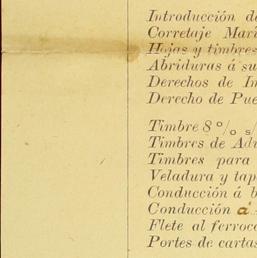 Introducción de
Corretaje Mari
Hojas y timbres
Abriduras á su
Derechos de In
Derecho de Pue
Timbre 8 % s/
Timbres de Adu
Timbres para
Veladura y tap
Conducción á b
Conducción á
Flete al ferroca
Portes de cartas